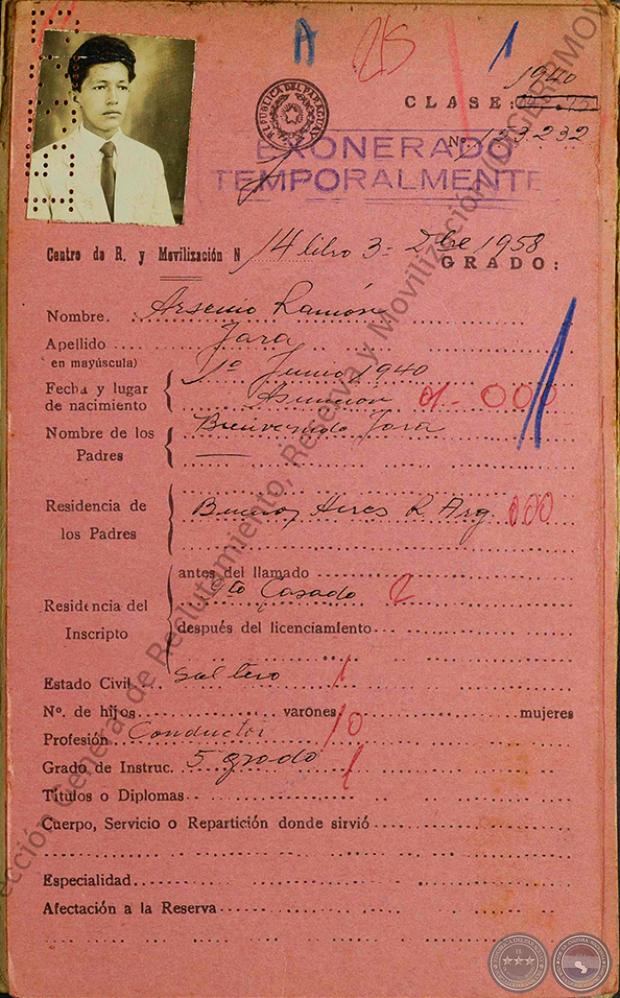 A 215 1
1940
CLASE:
REPUBLICA DEL PARAGUAY
Nº 123.232
EXONERADO
TEMPORALMENTE
Centro de R. y Movilización N 14 libro 3- Dbre 1958
GRADO:
Nombre. Arsenio Ramón
Apellido Jara
en mayúscula)
Fecha y lugar de nacimiento { 1º Junio 1940
Asunción 01-000
Nombre de los Padres { Bienvenido Jara
Residencia de los Padres { Buenos Aires R. Arg. 000
Residencia del Inscripto { antes del llamado
Pto Casado 2
después del licenciamiento
Estado Civil Soltero 1
Nº. de hijos varones 0 mujeres
Profesión Conductor
Grado de Instruc. 5 grado 1
Titulos o Diplomas
Cuerpo, Servicio o Repartición donde sirvió
Especialidad
Afectación a la Reserva
ección General de Reclutamiento, Reserva y Movilización (DIGERRMOV